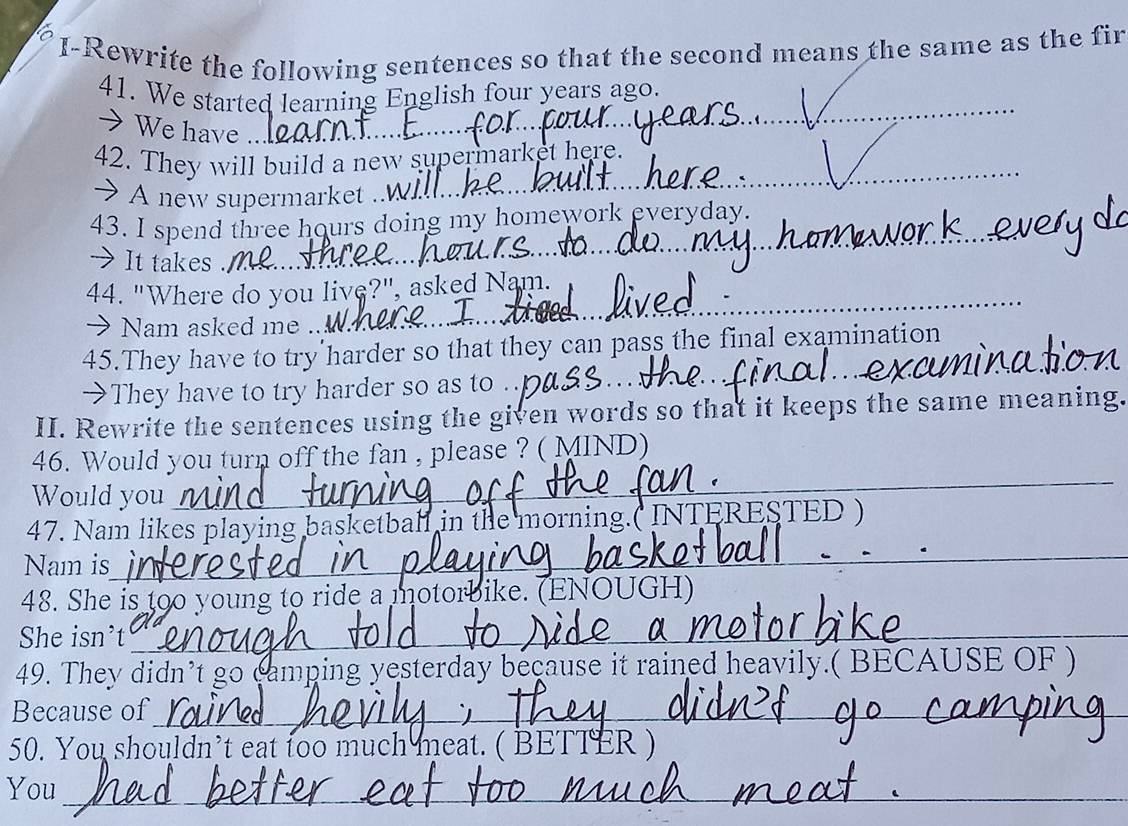 I-Rewrite the following sentences so that the second means the same as the fir
41. We started learning English four years ago.
→ We have ...learnt E for pour years.
42. They will build a new supermarket here.
→ A new supermarket ..will be built here.
43. I spend three hours doing my homework everyday.
→ It takes .me three hours to do my homework everyda
44. "Where do you live?", asked Nam.
→ Nam asked me ..where I lived.
45.They have to try harder so that they can pass the final examination
→They have to try harder so as to ..pass the final examination
II. Rewrite the sentences using the given words so that it keeps the same meaning.
46. Would you turn off the fan , please ? ( MIND)
Would you mind turning off the fan.
47. Nam likes playing basketball in the morning.( INTERESTED )
Nam is interested in playing basketball . . .
48. She is too young to ride a motorbike. (ENOUGH)
She isn't enough told to ride a motorbike
49. They didn't go camping yesterday because it rained heavily.( BECAUSE OF )
Because of rained hevily, They didn't go camping
50. You shouldn't eat too much meat. ( BETTER )
You had better eat too much meat.